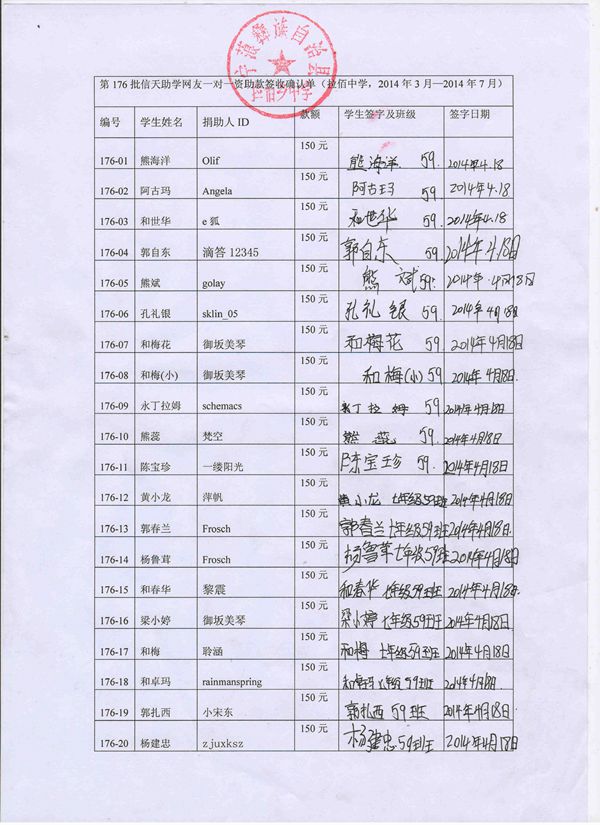 宁蒗彝族自治县
拉伯乡中学
第 176 批信天助学网友一对一资助款签收确认单（拉佰中学，2014 年 3 月—2014 年 7 月）
编号 学生姓名 捐助人 ID 款额 学生签字及班级 签字日期
176-01 熊海洋 Olif 150 元 熊海洋 59. 2014年4.18
176-02 阿古玛 Angela 150 元 阿古玛 59. 2014年4.18
176-03 和世华 e 狐 150 元 和世华 59. 2014年4.18
176-04 郭自东 滴答 12345 150 元 郭自东 59. 2014年4.18日
176-05 熊斌 golay 150 元 熊斌 59. 2014年.4月18日
176-06 孔礼银 sklin_05 150 元 孔礼银 59. 2014年4月18日
176-07 和梅花 御坂美琴 150 元 和梅花 59. 2014年4月18日
176-08 和梅(小) 御坂美琴 150 元 和梅(小) 59 2014年4月18日.
176-09 永丁拉姆 schemacs 150 元 永丁拉姆 59. 2014年4月18日
176-10 熊蕊 梵空 150 元 熊蕊 59. 2014年4月18日
176-11 陈宝珍 一缕阳光 150 元 陈宝珍 59. 2014年4月18日
176-12 黄小龙 萍帆 150 元 黄小龙 七年级59班 2014年4月18日
176-13 郭春兰 Frosch 150 元 郭春兰 七年级59班 2014年4月18日
176-14 杨鲁茸 Frosch 150 元 杨鲁茸 七年级59班 2014年4月18日
176-15 和春华 黎震 150 元 和春华 七年级59班 2014年4月18日.
176-16 梁小婷 御坂美琴 150 元 梁小婷 七年级59班 2014年4月18日.
176-17 和梅 聆涵 150 元 和梅 七年级59班 2014年4月18日
176-18 和卓玛 rainmanspring 150 元 和卓玛 七年级59班 2014年4月18日.
176-19 郭扎西 小宋东 150 元 郭扎西 59班 2014年4月18日.
176-20 杨建忠 zjuxksz 150 元 杨建忠 59班 2014年4月18日